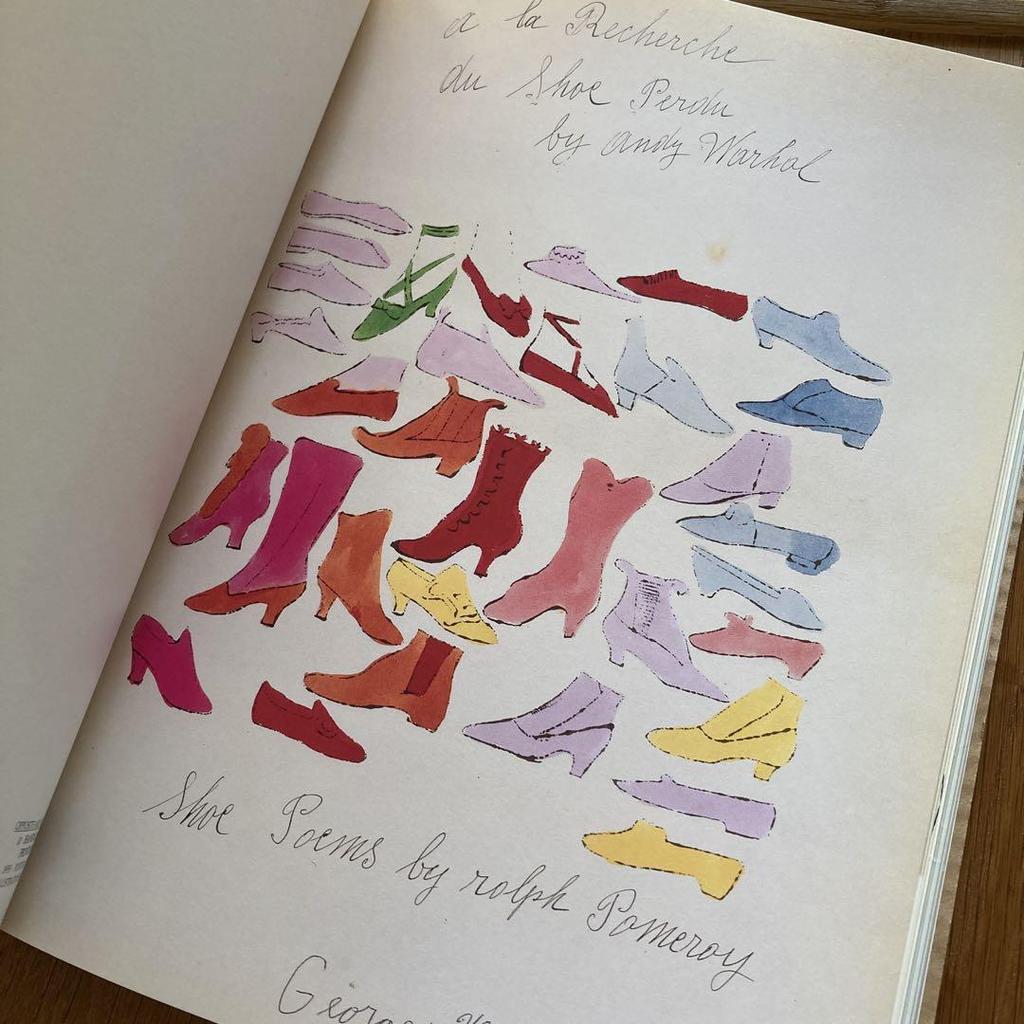 a la Recherche
du Shoe Perdu
by andy Warhol
Shoe Poems by rolph Pomeroy